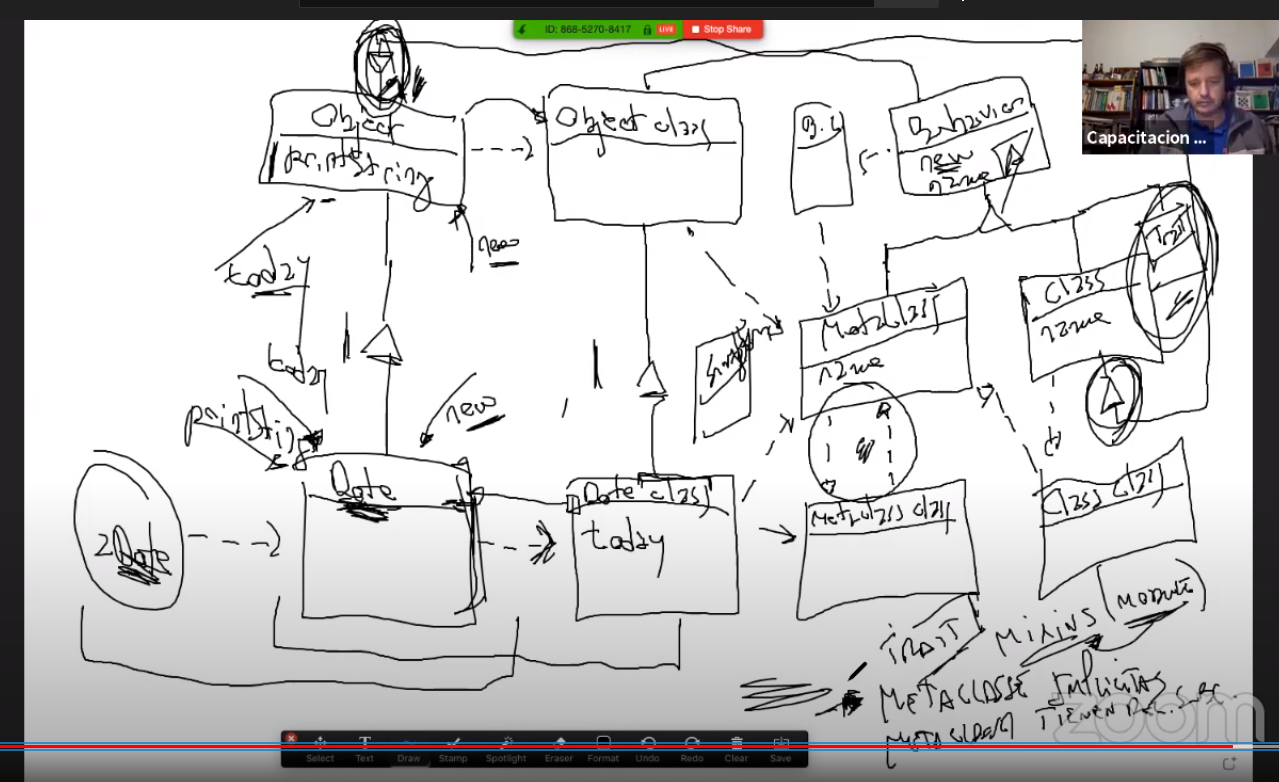 ID: 868-5270-8417
LIVE
Stop Share
Capacitacion ...
Object
printString
Object class
B.C
Behavior
new
name
today
new
today
printString
new
Metaclass
name
Class
name
Trait
Date
Date class
today
Metaclass class
Class Class
2Date
TRAIT
MIXINS (MODULE)
METACLASSE IMPLICITAS
TIENEN
zoom
Select
Text
Draw
Stamp
Spotlight
Eraser
Format
Undo
Redo
Clear
Save